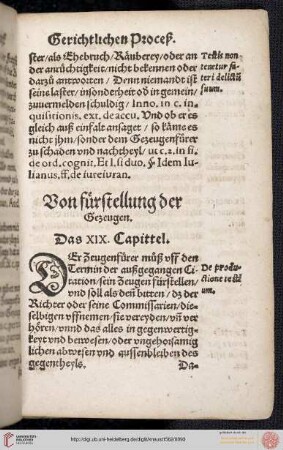 Gerichtlichen Proceß.
ster/als iEhebruch/Räuberey/oder an
der anrüchtigkeit/nicht bekennen oder
darzů antwoiten/Denn niemandt ist
seine laster/insonderheit ob in gemein/
zuuermelden schuldig/Inno. in c. in-
quisitionis. ext. de accu. Vnd ob er es
gleich auß einfalt ansaget/so käme es
nicht jhm/sonder dem Gezeugenfürer
zu schaden vnd nachtheyl/vt c. 1. in fi.
de ord. cognit. Et l. si duo. §. Idem Iu-
lianus, ff. de iureiuran.
Testis non
tenetur fa-
teri delictū
suum.
Von fürstellung der
Gezeugen.
Das XIX. Capittel.
DEr Zeugenfürer můß vff den
Termin der außgegangen Ci-
tation/sein Zeugen fürstellen/
vnd soll als denn bitten/dz der
Richter oder seine Commissarien/die-
selbigen vffnemen/sie vereyden/vñ ver
hören/vnnd das alles in gegenwertig-
keyt vnd bewesen/oder vngehorsamig
lichen abwesen vnd aussenbleiben des
gegentheyls.
De produ-
ctione testi
um.
Da-
http://digi.ub.uni-heidelberg.de/diglit/knaust1569/0090